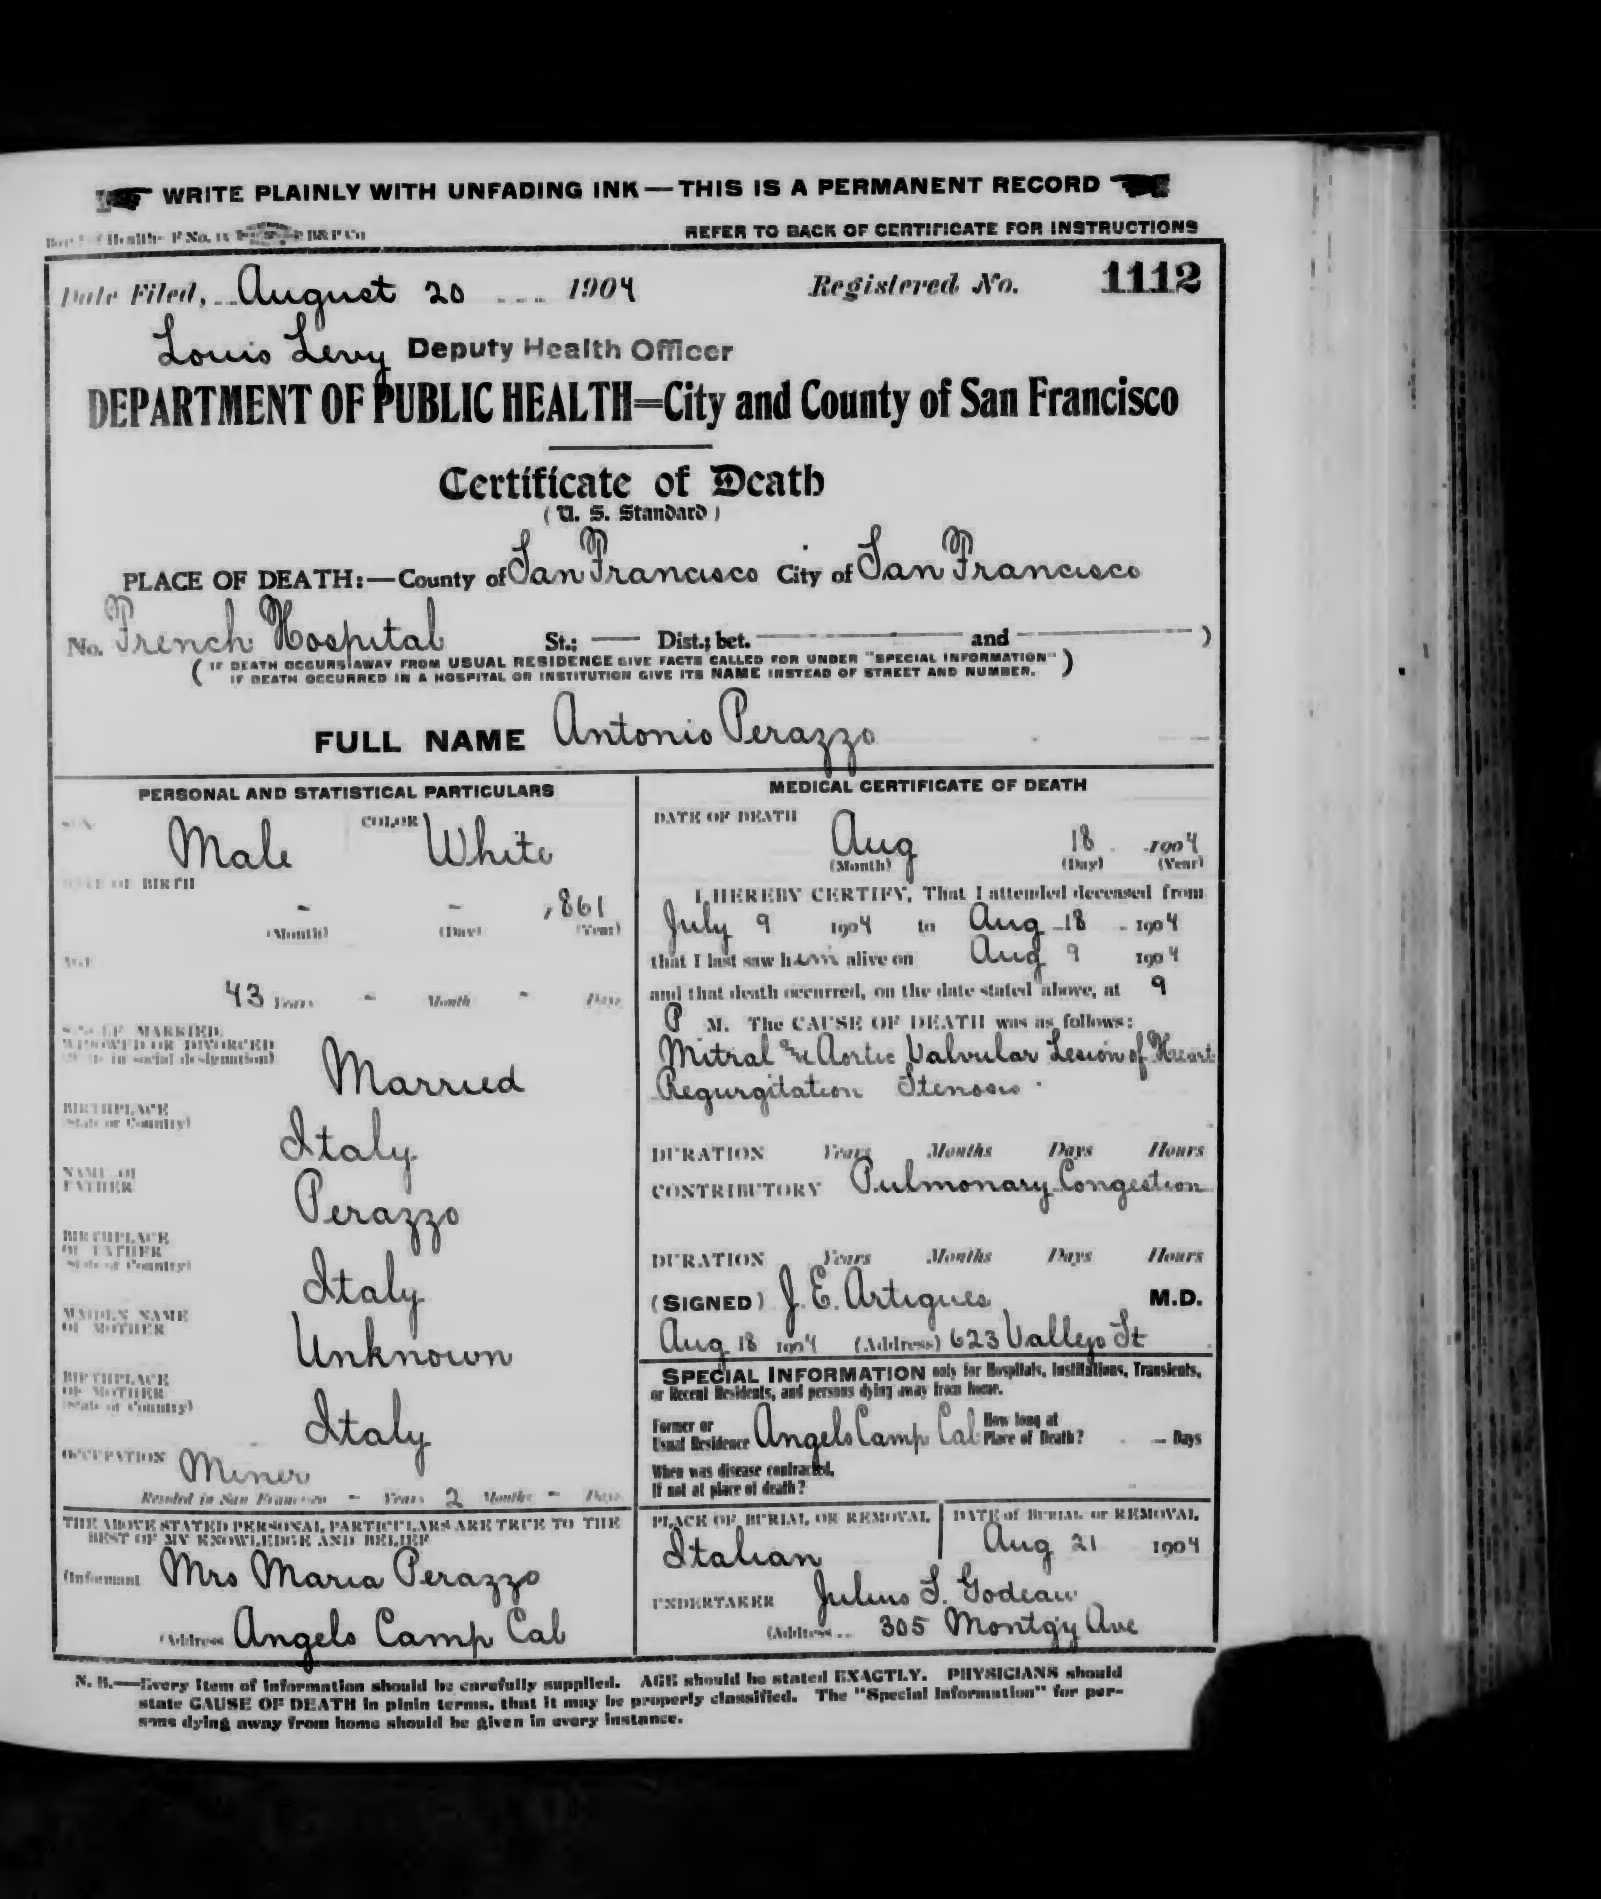 WRITE PLAINLY WITH UNFADING INK — THIS IS A PERMANENT RECORD
Health- F No. B&P Co REFER TO BACK OF CERTIFICATE FOR INSTRUCTIONS
Date Filed, August 20 1904 Registered No. 1112
Louis Levy Deputy Health Officer
DEPARTMENT OF PUBLIC HEALTH=City and County of San Francisco
Certificate of Death
(U. S. Standard)
PLACE OF DEATH:—County of San Francisco City of San Francisco
No. French Hospital St.; — Dist.; bet. — and — )
( IF DEATH OCCURS AWAY FROM USUAL RESIDENCE GIVE FACTS CALLED FOR UNDER "SPECIAL INFORMATION" )
IF DEATH OCCURRED IN A HOSPITAL OR INSTITUTION GIVE ITS NAME INSTEAD OF STREET AND NUMBER.
FULL NAME Antonio Perazzo
PERSONAL AND STATISTICAL PARTICULARS
SEX Male COLOR White
DATE OF BIRTH
- - 1861
(Month) (Day) (Year)
AGE
43 Years - Month - Days
SINGLE, MARRIED,
WIDOWED OR DIVORCED
(Write in social designation)
Married
BIRTHPLACE
(State or Country)
Italy
NAME OF
FATHER
Perazzo
BIRTHPLACE
OF FATHER
(State or Country)
Italy
MAIDEN NAME
OF MOTHER
Unknown
BIRTHPLACE
OF MOTHER
(State or Country)
Italy
OCCUPATION Miner
Resided in San Francisco - Years 2 Months - Days
THE ABOVE STATED PERSONAL PARTICULARS ARE TRUE TO THE
BEST OF MY KNOWLEDGE AND BELIEF
(Informant Mrs Maria Perazzo
(Address Angels Camp Cal
MEDICAL CERTIFICATE OF DEATH
DATE OF DEATH
Aug 18 1904
(Month) (Day) (Year)
I HEREBY CERTIFY, That I attended deceased from
July 9 1904 to Aug 18 1904
that I last saw him alive on Aug 9 1904
and that death occurred, on the date stated above, at 9
P M. The CAUSE OF DEATH was as follows:
Mitral and Aortic Valvular Lesion of Heart
Regurgitation Stenosis
DURATION Years Months Days Hours
CONTRIBUTORY Pulmonary Congestion
DURATION Years Months Days Hours
(SIGNED) J. E. Artigues M.D.
Aug 18 1904 (Address) 623 Vallejo St
SPECIAL INFORMATION only for Hospitals, Institutions, Transients,
or Recent Residents, and persons dying away from home.
Former or
Usual Residence Angels Camp Cal How long at
Place of Death? - Days
When was disease contracted,
If not at place of death?
PLACE OF BURIAL OR REMOVAL
Italian
DATE of BURIAL or REMOVAL
Aug 21 1904
UNDERTAKER Julius S. Godeau
(Address 305 Montg'y Ave
N. B.—Every item of information should be carefully supplied. AGE should be stated EXACTLY. PHYSICIANS should
state CAUSE OF DEATH in plain terms, that it may be properly classified. The "Special Information" for per-
sons dying away from home should be given in every instance.